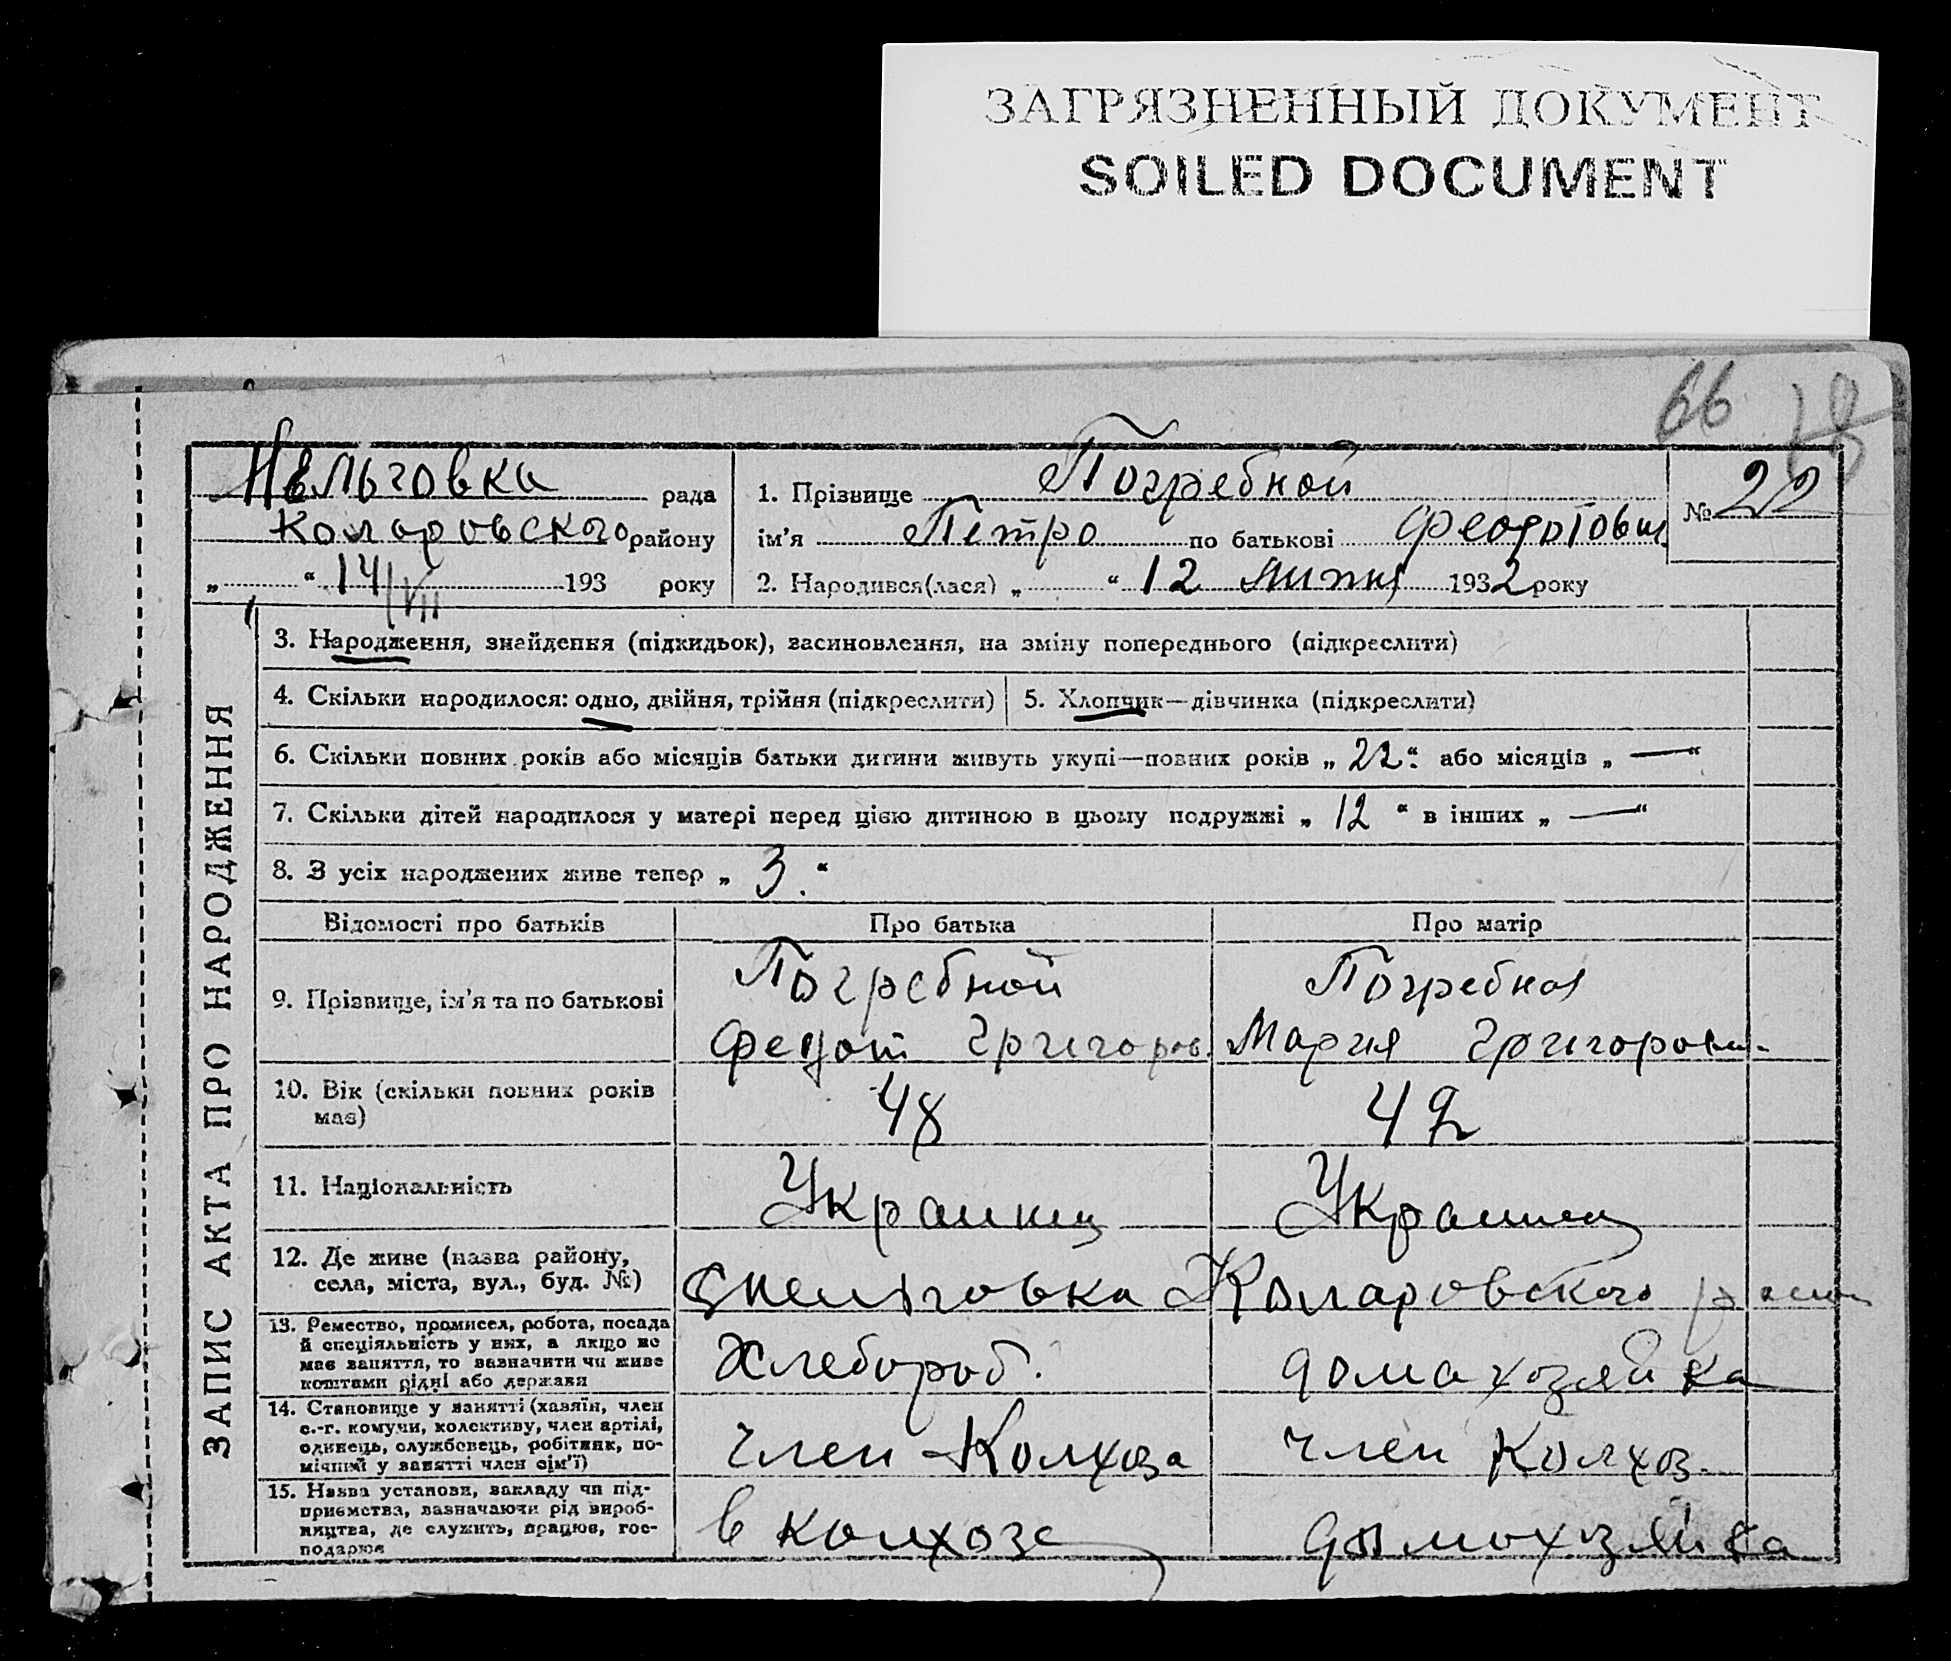 ЗАГРЯЗНЕННЫЙ ДОКУМЕНТ
SOILED DOCUMENT
66
Нельговка рада
Коларовского району
„ “ 14/VII 193 року
1. Прізвище Погребной
ім’я Петро по батькові Феодотович
2. Народився(лася) „ “ 12 липня 1932 року
№ 22
ЗАПИС АКТА ПРО НАРОДЖЕННЯ
3. Народження, знайдення (підкидьок), засиновлення, на зміну попереднього (підкреслити)
4. Скільки народилося: одно, двійня, трійня (підкреслити)
5. Хлопчик—дівчинка (підкреслити)
6. Скільки повних років або місяців батьки дитини живуть укупі—повних років „ 22 “ або місяців „ — “
7. Скільки дітей народилося у матері перед цією дитиною в цьому подружжі „ 12 “ в інших „ — “
8. З усіх народжених живе тепер „ 3. “
Відомості про батьків Про батька Про матір
9. Прізвище, ім’я та по батькові
Погребной
Федот Григоров.
Погребная
Мария Григоровн.
10. Вік (скільки повних років
має)
48
42
11. Національність
Украинец
12. Де живе (назва району,
села, міста, вул., буд. №)
Коларовского
13. Ремество, промисел, робота, посада
й спеціяльність у них, а якщо не
має заняття, то зазначити чи живе
коштами рідні або держави
Хлебороб.
домахозяйка
14. Становище у занятті (хазяїн, член
с.-г. комуни, колективу, член артілі,
одинець, службовець, робітник, по-
мічний у занятті член сім’ї)
член Колхоза
член Колхоз.
15. Назва установи, закладу чи під-
приємства, зазначаючи рід вироб-
ництва, де служить, працює, гос-
подарює
в колхозе
домохозяйка